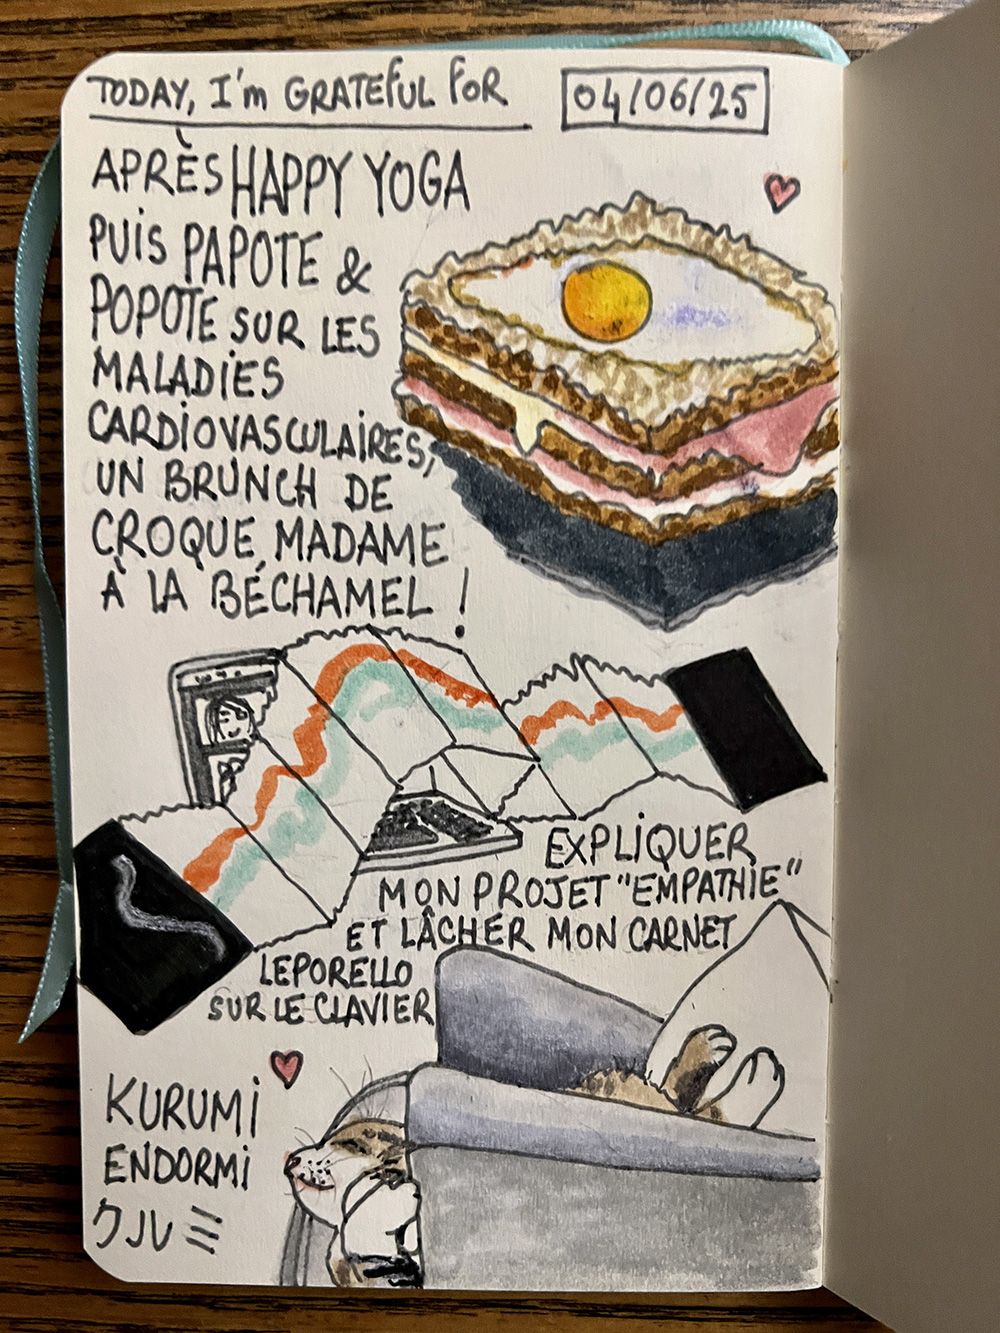 TODAY, I'm GRATEFUL FOR
04/06/25
APRÈS HAPPY YOGA
PUIS PAPOTE &
POPOTE SUR LES
MALADIES
CARDIOVASCULAIRES,
UN BRUNCH DE
CROQUE MADAME
À LA BÉCHAMEL !
EXPLIQUER
MON PROJET "EMPATHIE"
ET LÂCHER MON CARNET
LEPORELLO
SUR LE CLAVIER
KURUMI
ENDORMI
クルミ